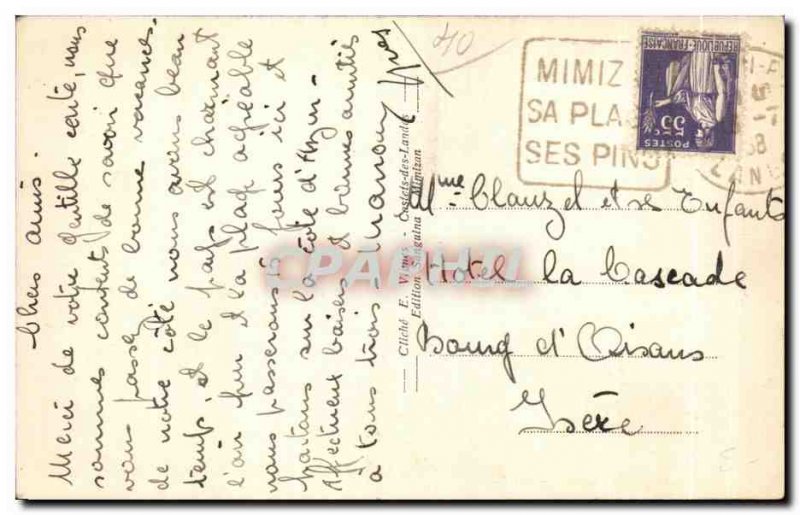 Chers amis.
Merci de votre gentille carte, nous
sommes contents de savoir que
vous passez de bonne vacances.
de notre côté nous avons beau
temps, et le pays est charmant
l'air pur et la plage agréable
nous passerons jours ici et
sur la côte d'Azur.
Affectueux baisers et bonnes amitiés
à tous trois.
Yves
40
Cliché E. Vignes - Castets-des-Landes
Edition Sanguina Mimizan
MIMIZ
SA PLA
SES PINS
REPUBLIQUE FRANÇAISE
55c
POSTES
Mme Clauzel et ses Enfants
Hotel la Cascade
Bourg d'Oisans
Isère
CPAPHIL